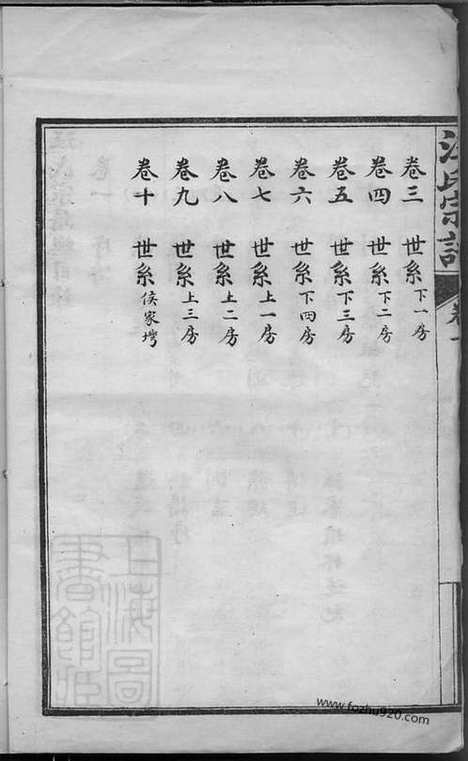 卷三 世系下一房
卷四 世系下二房
卷五 世系下三房
卷六 世系下四房
卷七 世系上一房
卷八 世系上二房
卷九 世系上三房
卷十 世系侯家灣
氏宗譜
卷一
上海圖書館藏
www.fozhu920.com